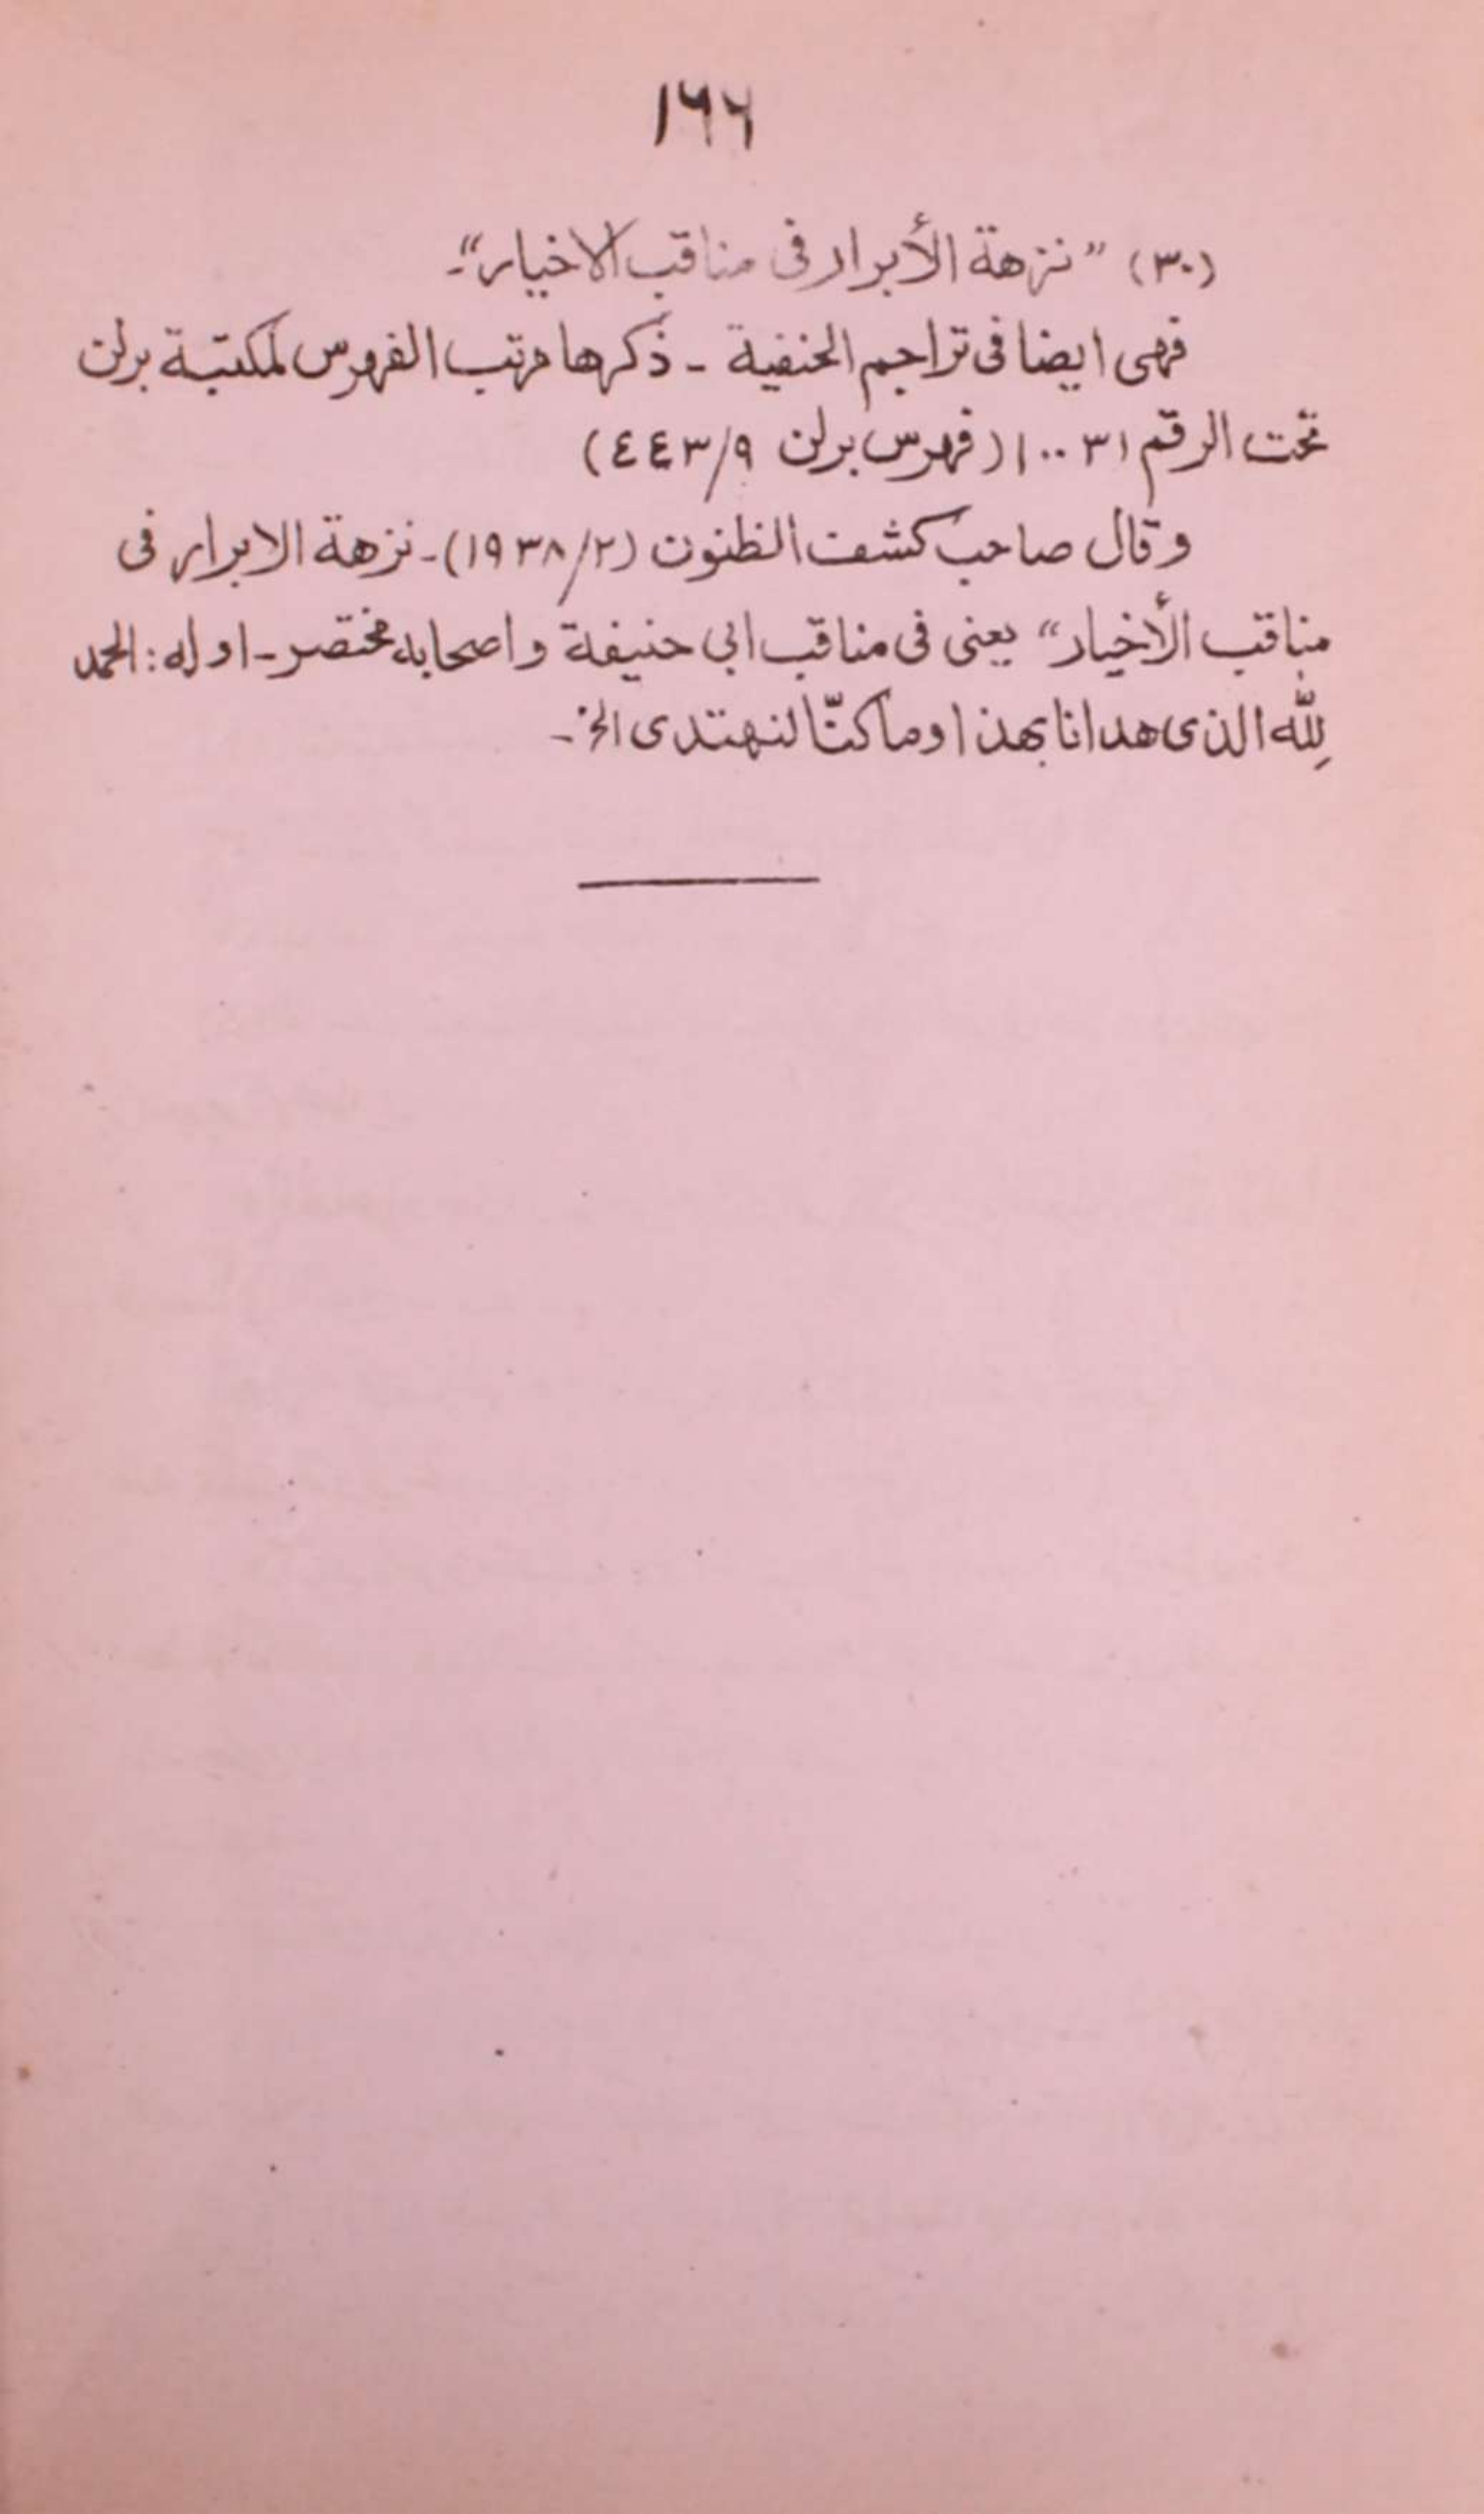 ١٦٦
(٣٠) ”نزهة الأبرار فى مناقب الاخيار“۔
فهى ايضا فى تراجم الحنفية - ذكرها مرتب الفهرس لمكتبة برلن
تحت الرقم ١٠٠٣١ (فهرس برلن ٤٤٣/٩)
وقال صاحب كشف الظنون (١٩٣٨/٢)- نزهة الابرار فى
مناقب الأخيار“ يعنى فى مناقب ابى حنيفة واصحابه مختصر - اوله: الحمد
لِلّٰه الذى هدانا بهذا وما كنّا لنهتدى الخ -